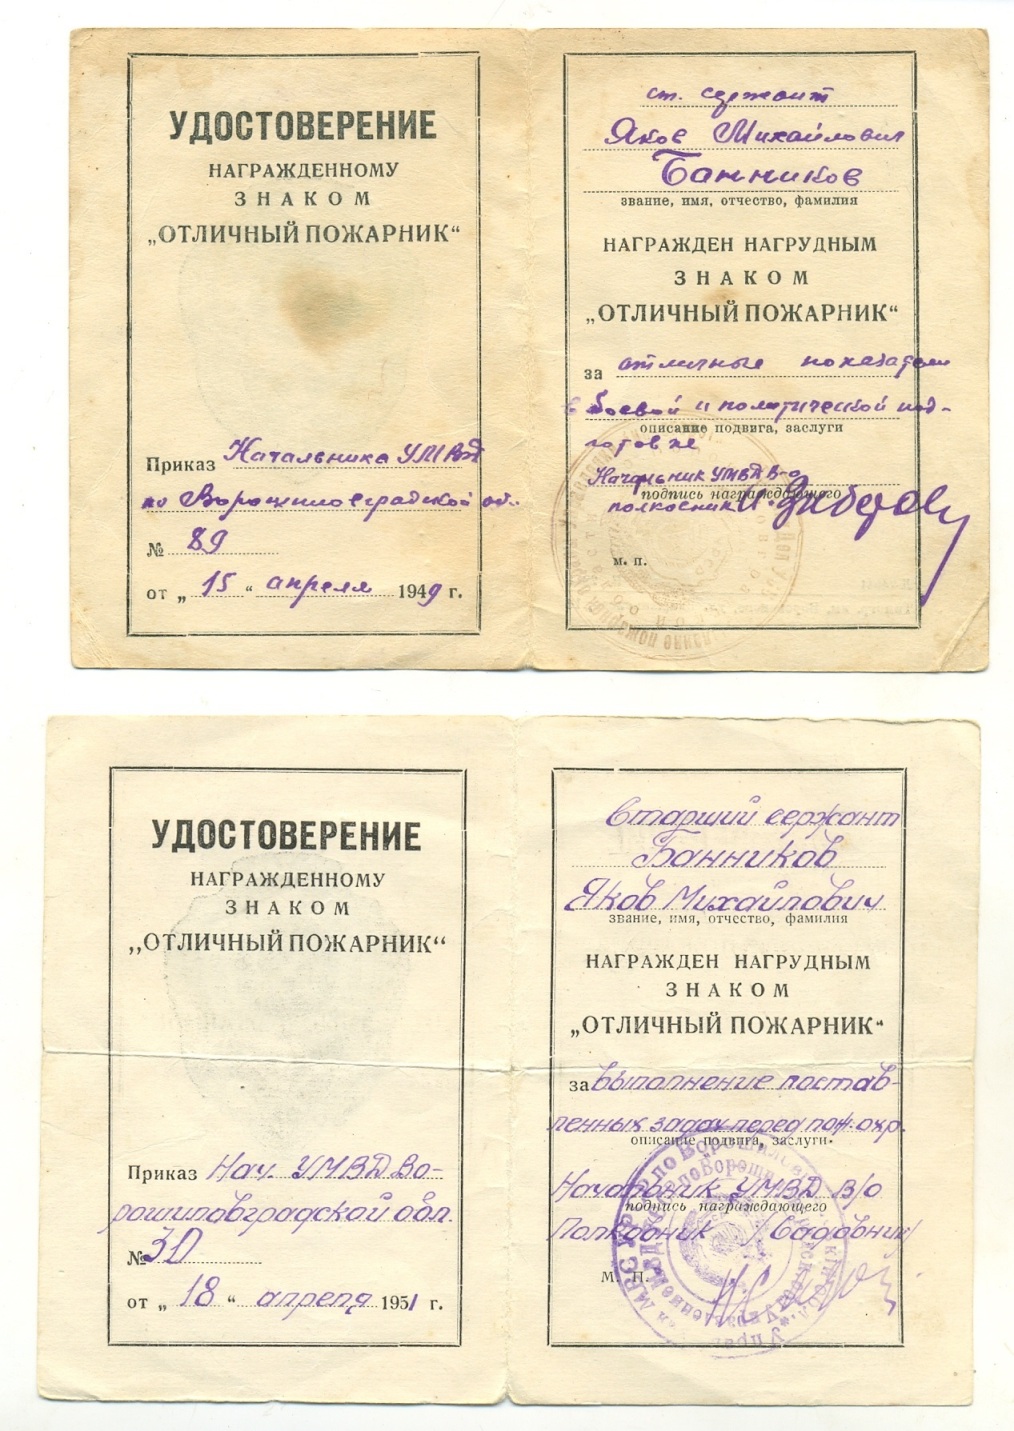 УДОСТОВЕРЕНИЕ
НАГРАЖДЕННОМУ
ЗНАКОМ
„ОТЛИЧНЫЙ ПОЖАРНИК“
Приказ Начальника УМВД
по Ворошиловградской об.
№ 89
от „15“ апреля 1949 г.
ст. сержант
Яков Михайлович
Банников
звание, имя, отчество, фамилия
НАГРАЖДЕН НАГРУДНЫМ
ЗНАКОМ
„ОТЛИЧНЫЙ ПОЖАРНИК“
за отличные показатели
в боевой и политической под-
описание подвига, заслуги
готовке
Начальник УМВД В-о
подпись награждающего
полковник
м. п.
УДОСТОВЕРЕНИЕ
НАГРАЖДЕННОМУ
ЗНАКОМ
„ОТЛИЧНЫЙ ПОЖАРНИК“
Приказ Нач. УМВД Во-
рошиловградской обл.
№ 30
от „18“ апреля 1951 г.
Старший сержант
Банников
Яков Михайлович
звание, имя, отчество, фамилия
НАГРАЖДЕН НАГРУДНЫМ
ЗНАКОМ
„ОТЛИЧНЫЙ ПОЖАРНИК“
за выполнение постав-
ленных задач перед пож. охр.
описание подвига, заслуги
Начальник УМВД В/О
подпись награждающего
Полковник /Садовник/
М. П.